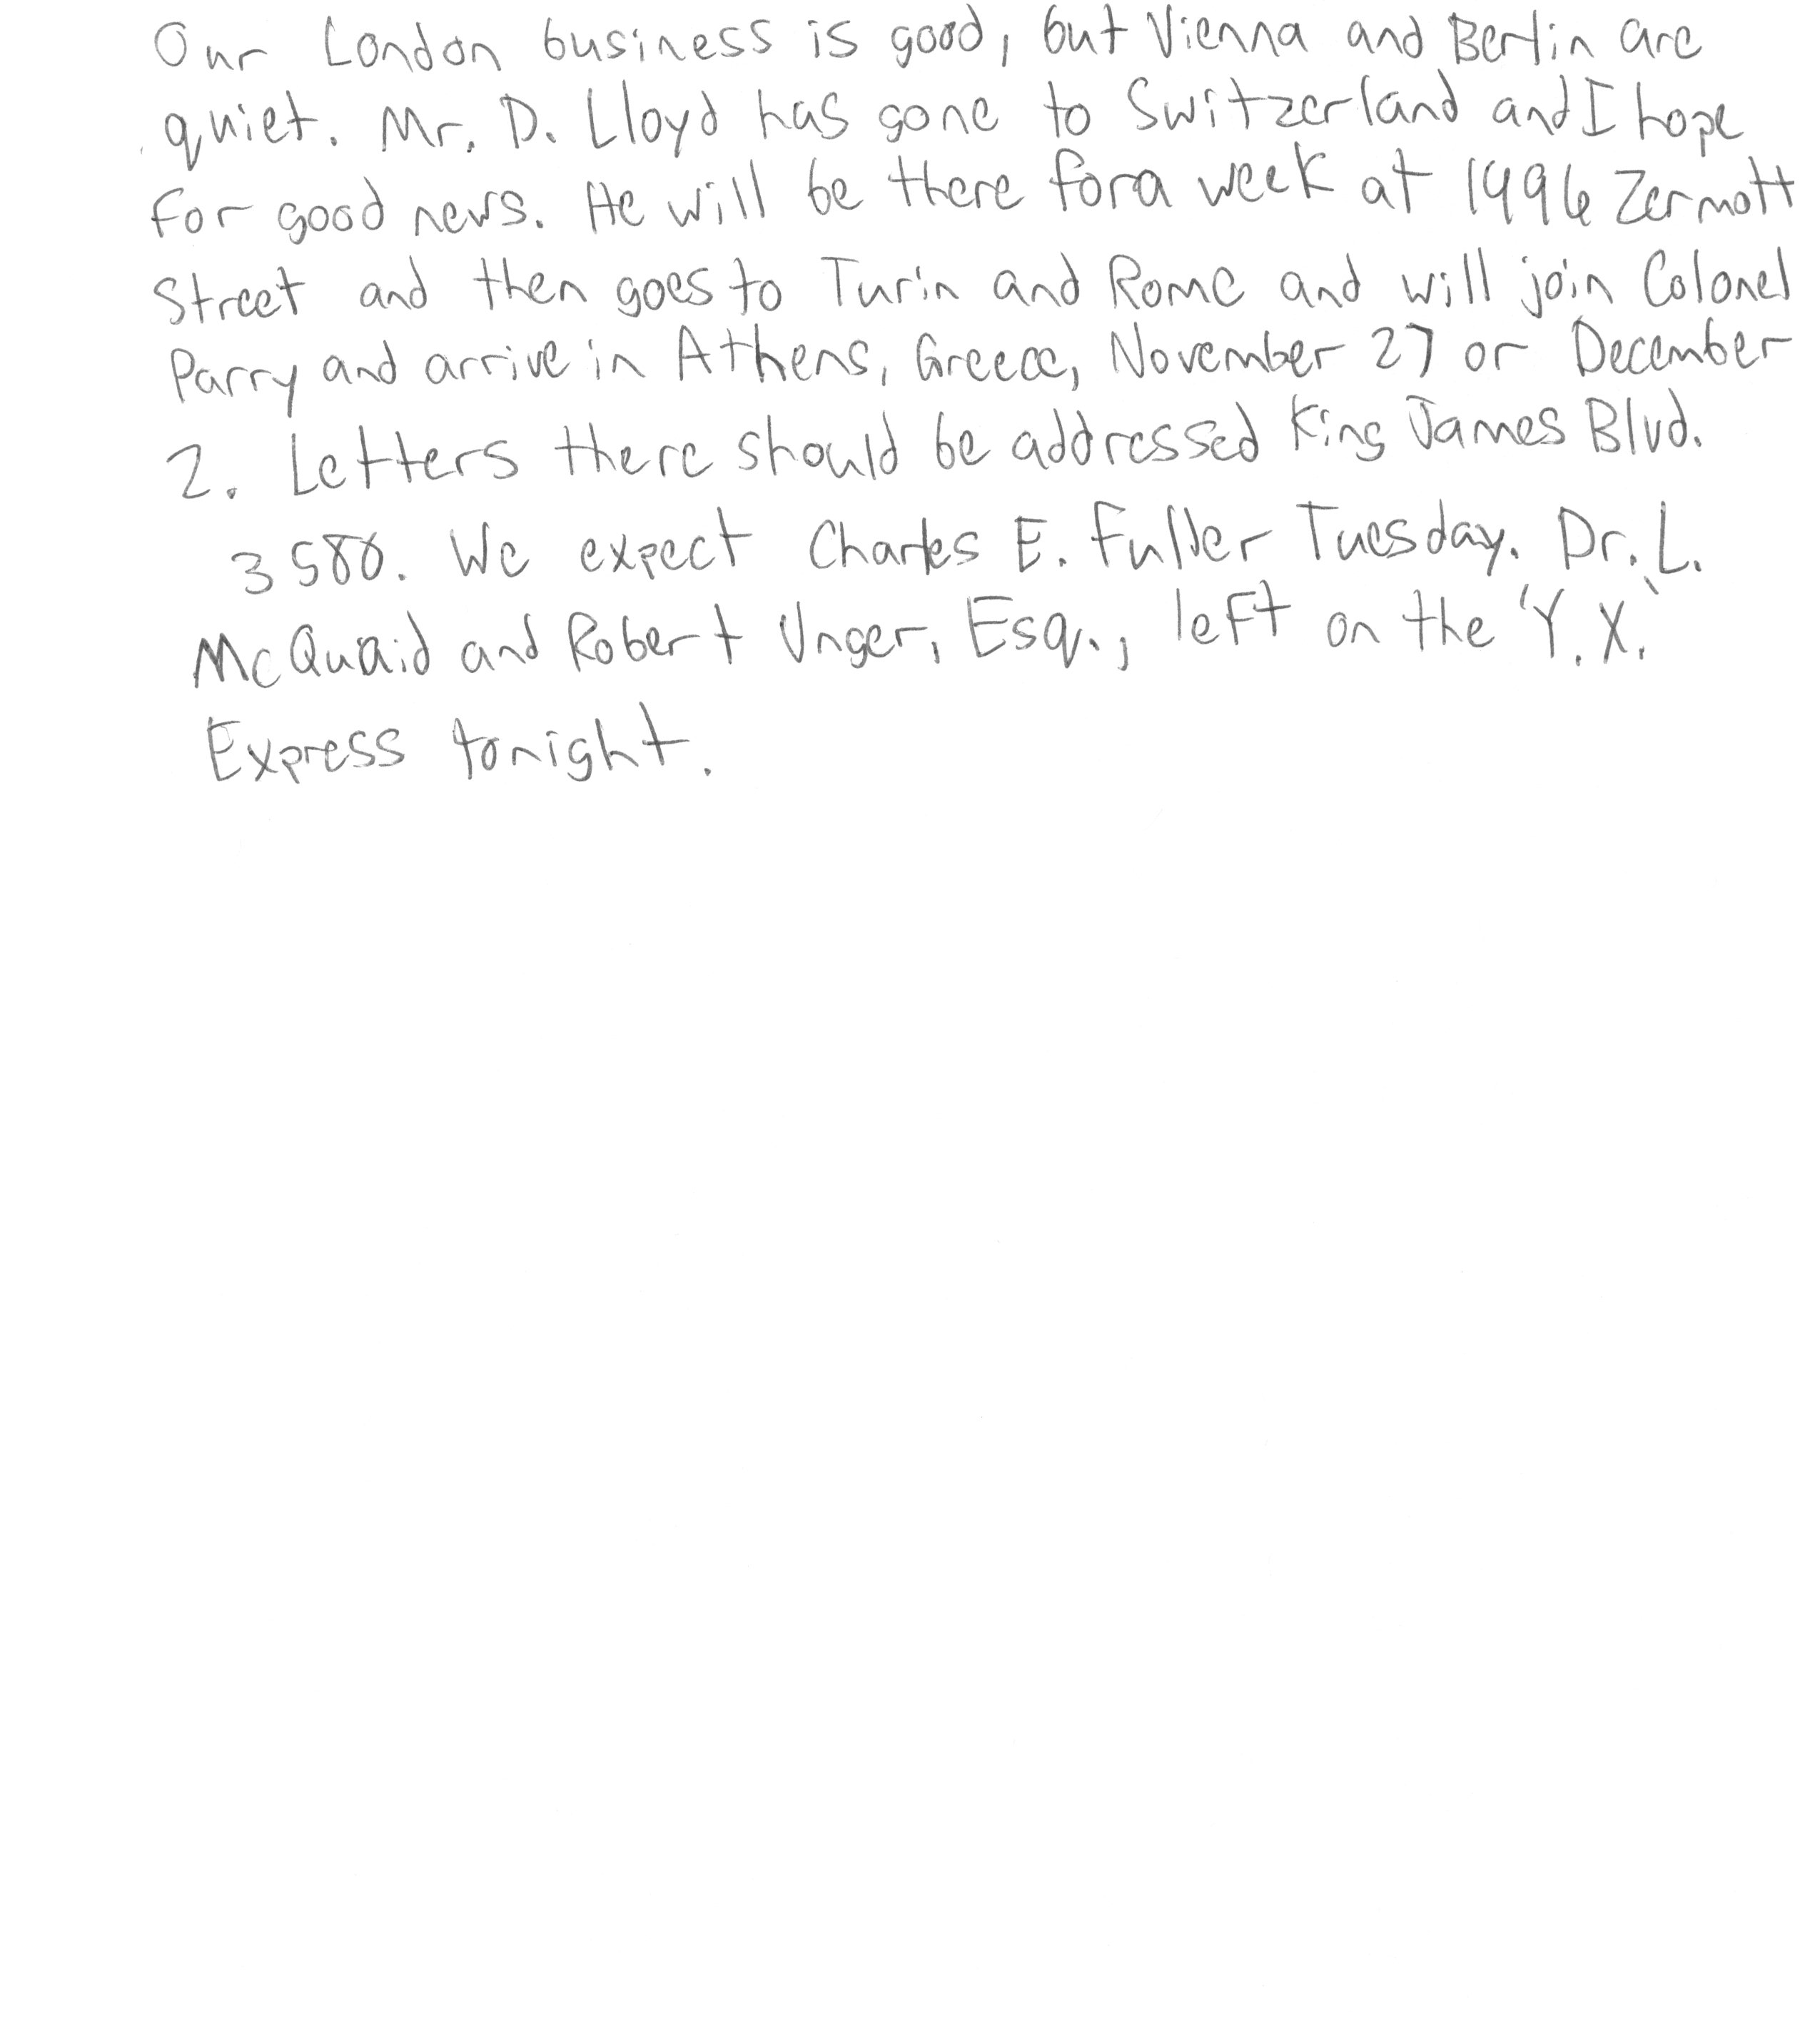 Our London business is good, but Vienna and Berlin are
quiet. Mr. D. Lloyd has gone to Switzerland and I hope
for good news. He will be there for a week at 1496 Zermott
Street and then goes to Turin and Rome and will join Colonel
Parry and arrive in Athens, Greece, November 27 or December
2. Letters there should be addressed King James Blvd.
3580. We expect Charles E. Fuller Tuesday. Dr. L.
McQuaid and Robert Unger, Esq., left on the 'Y.X.'
Express tonight.